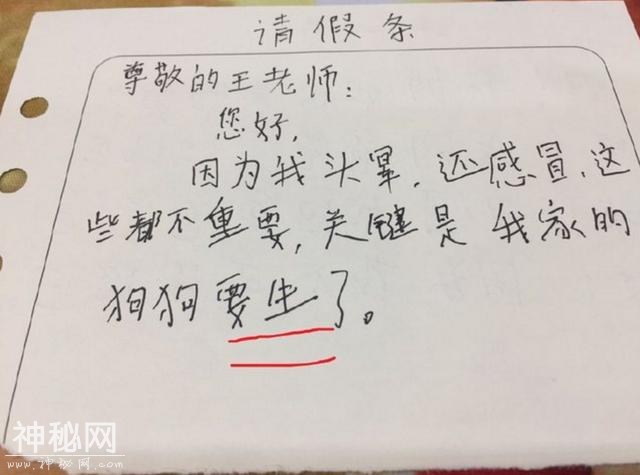 请假条
尊敬的王老师：
您好，
因为我头晕，还感冒，这
些都不重要，关键是我家的
狗狗要生了。
神秘网
www.神秘网.com